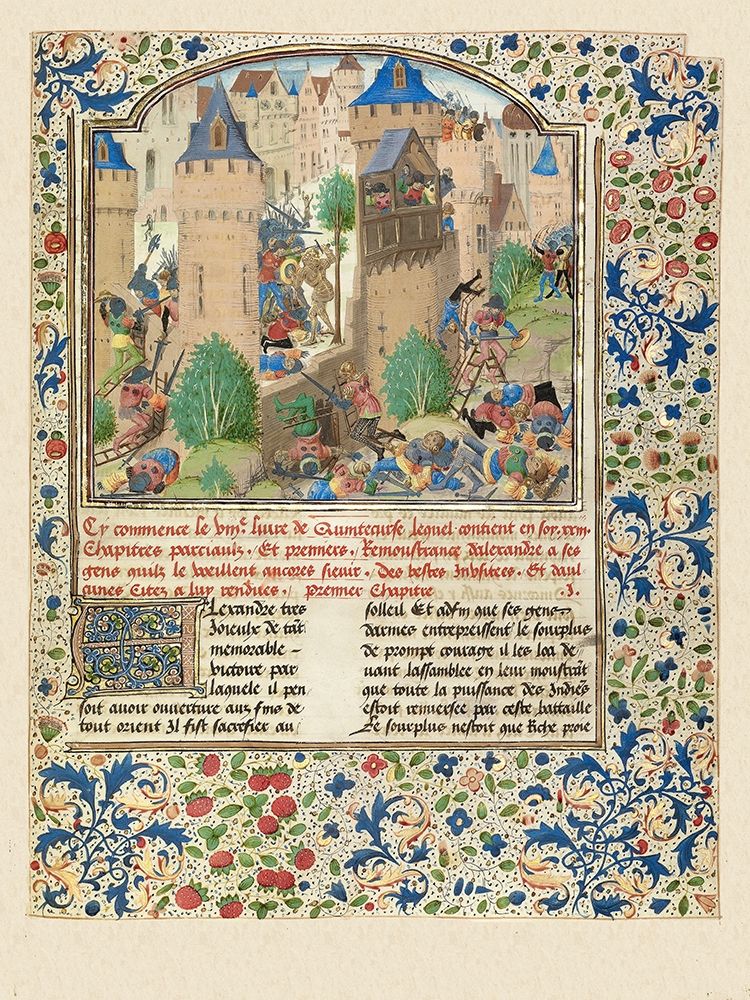 Cy commence le viije liure de Quintecurse lequel contient en soy xxiiij
Chapitres parciaulx. Et premiers. Remoustrance dalexandre a ses
gens quilz le veillent ancores sieuir. Des bestes Inusitees. Et daul
cunes Citez a luy rendues. premier Chapitre .I.
Alexandre tres
Joieulx de tāt
memorable
victoire par
laquele il pen
soit auoir ouuerture aux fins de
tout orient Il fist sacrefier au
solleil Et adfin que ses gens
darmes entrepreissent le sourplus
de prompt courage il les loa de
uant lassamblee en leur moustrāt
que toute la puissance des Indiēs
estoit renuersee par ceste bataille
Le sourplus nestoit que Riche proie